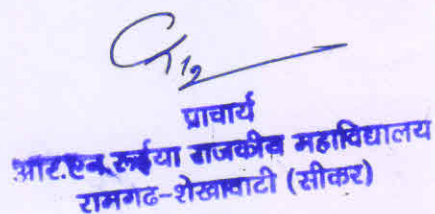 प्राचार्य
आर.एन. रूईया राजकीय महाविद्यालय
रामगढ-शेखावाटी (सीकर)